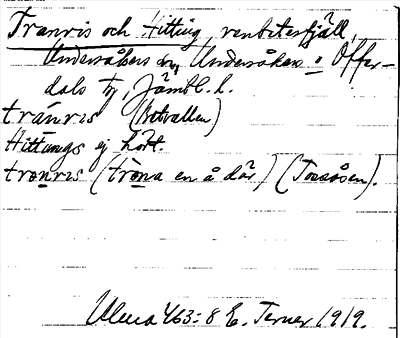 Tranris och Hitting, renbetesfjäll,
Undersåkers sn, Undersåkers o Offer-
dals tg, Jämtl. l.
tránris (Antvallen)
Hittings ej hört.
tronris (trona en å där) (Torsåsen).
Ulma 463:8 E. Terner 1919.